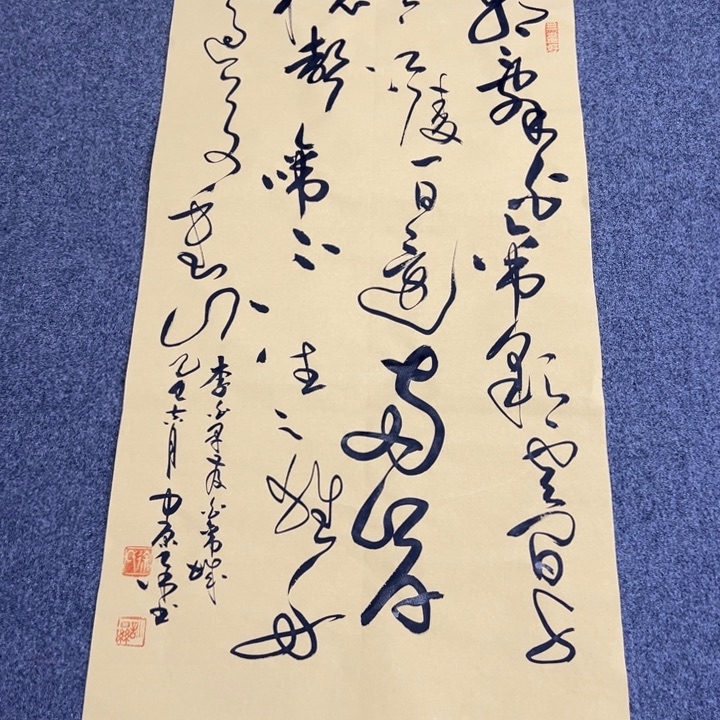 朝辭白帝彩雲間千
里江陵一日還兩岸
猿聲啼不住輕舟
過萬重山
李白早發白帝城
乙巳六月 中原